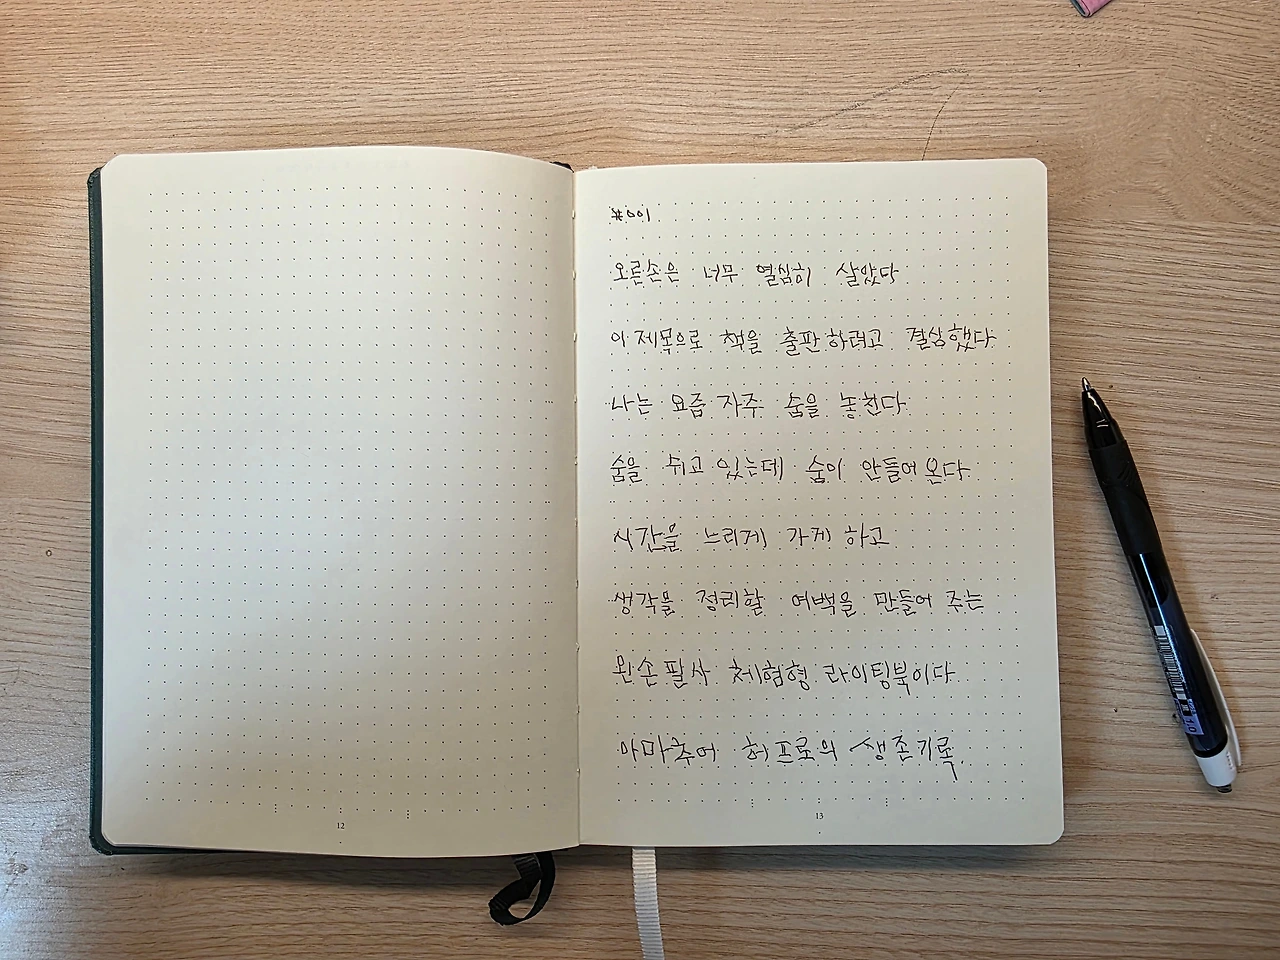 #001
오른손은 너무 열심히 살았다
이 제목으로 책을 출판하려고 결심했다
나는 요즘 자주 숨을 놓친다
숨을 쉬고 있는데 숨이 안들어온다
시간을 느리게 가게 하고
생각을 정리할 여백을 만들어 주는
왼손필사 체험형 라이팅북이다
아마추어 허프로의 생존기록.
12
13